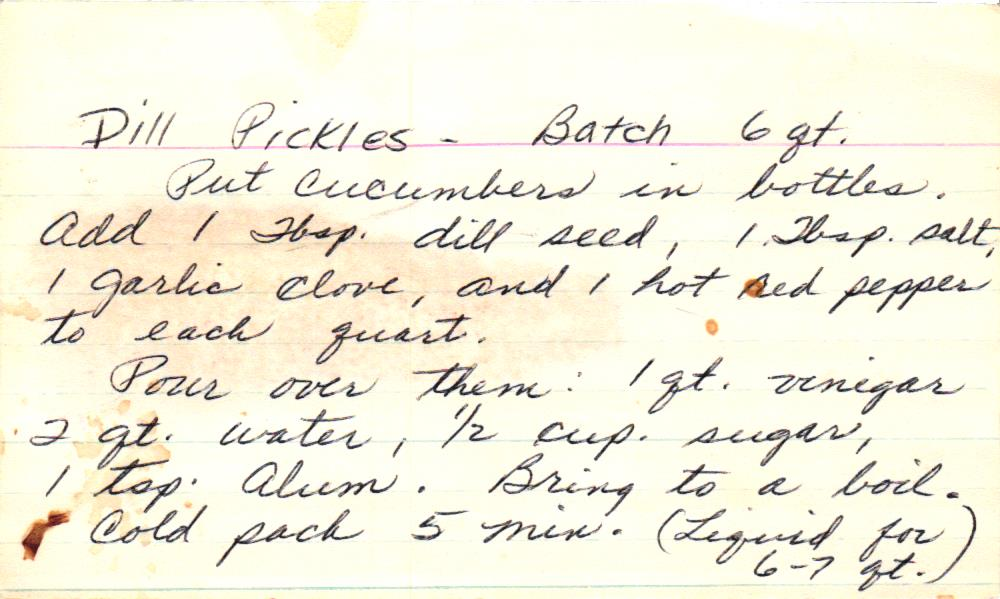 Dill Pickles - Batch 6 qt.
Put cucumbers in bottles.
Add 1 Tbsp. dill seed, 1 Tbsp. salt,
1 garlic clove, and 1 hot red pepper
to each quart.
Pour over them: 1 qt. vinegar
2 qt. water, 1/2 cup. sugar,
1 tsp. Alum. Bring to a boil.
Cold pack 5 min. (Liquid for
6-7 qt.)